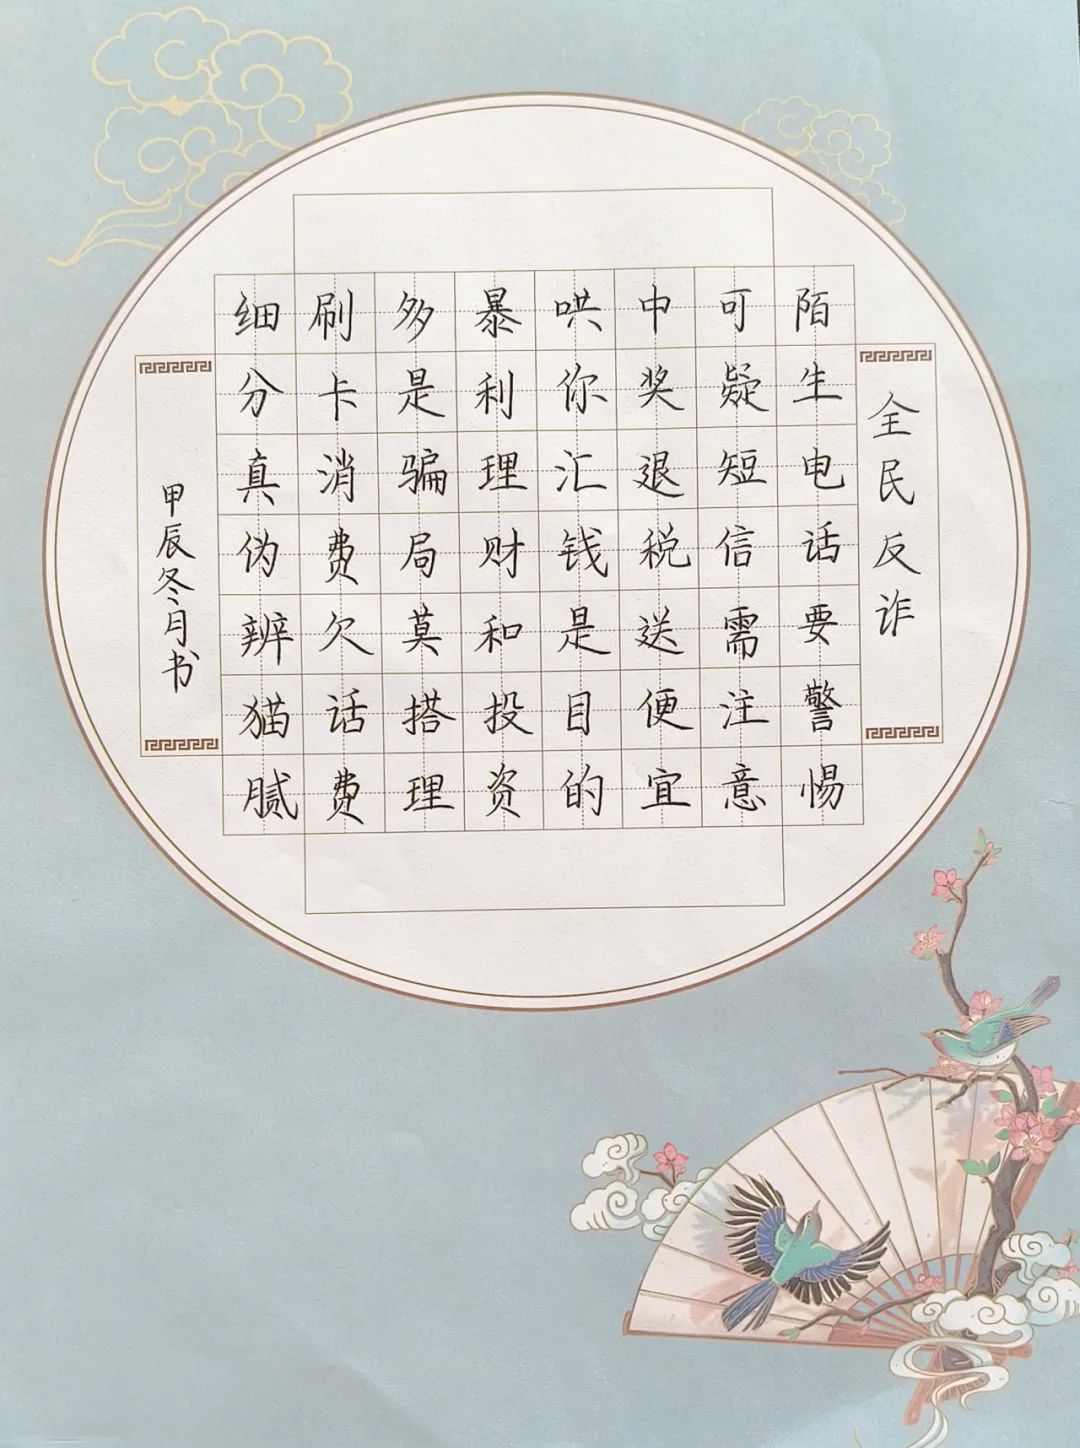 全民反诈
陌生电话要警惕
可疑短信需注意
中奖退税送便宜
哄你汇钱是目的
暴利理财和投资
多是骗局莫搭理
刷卡消费欠话费
细分真伪辨猫腻
甲辰冬月书